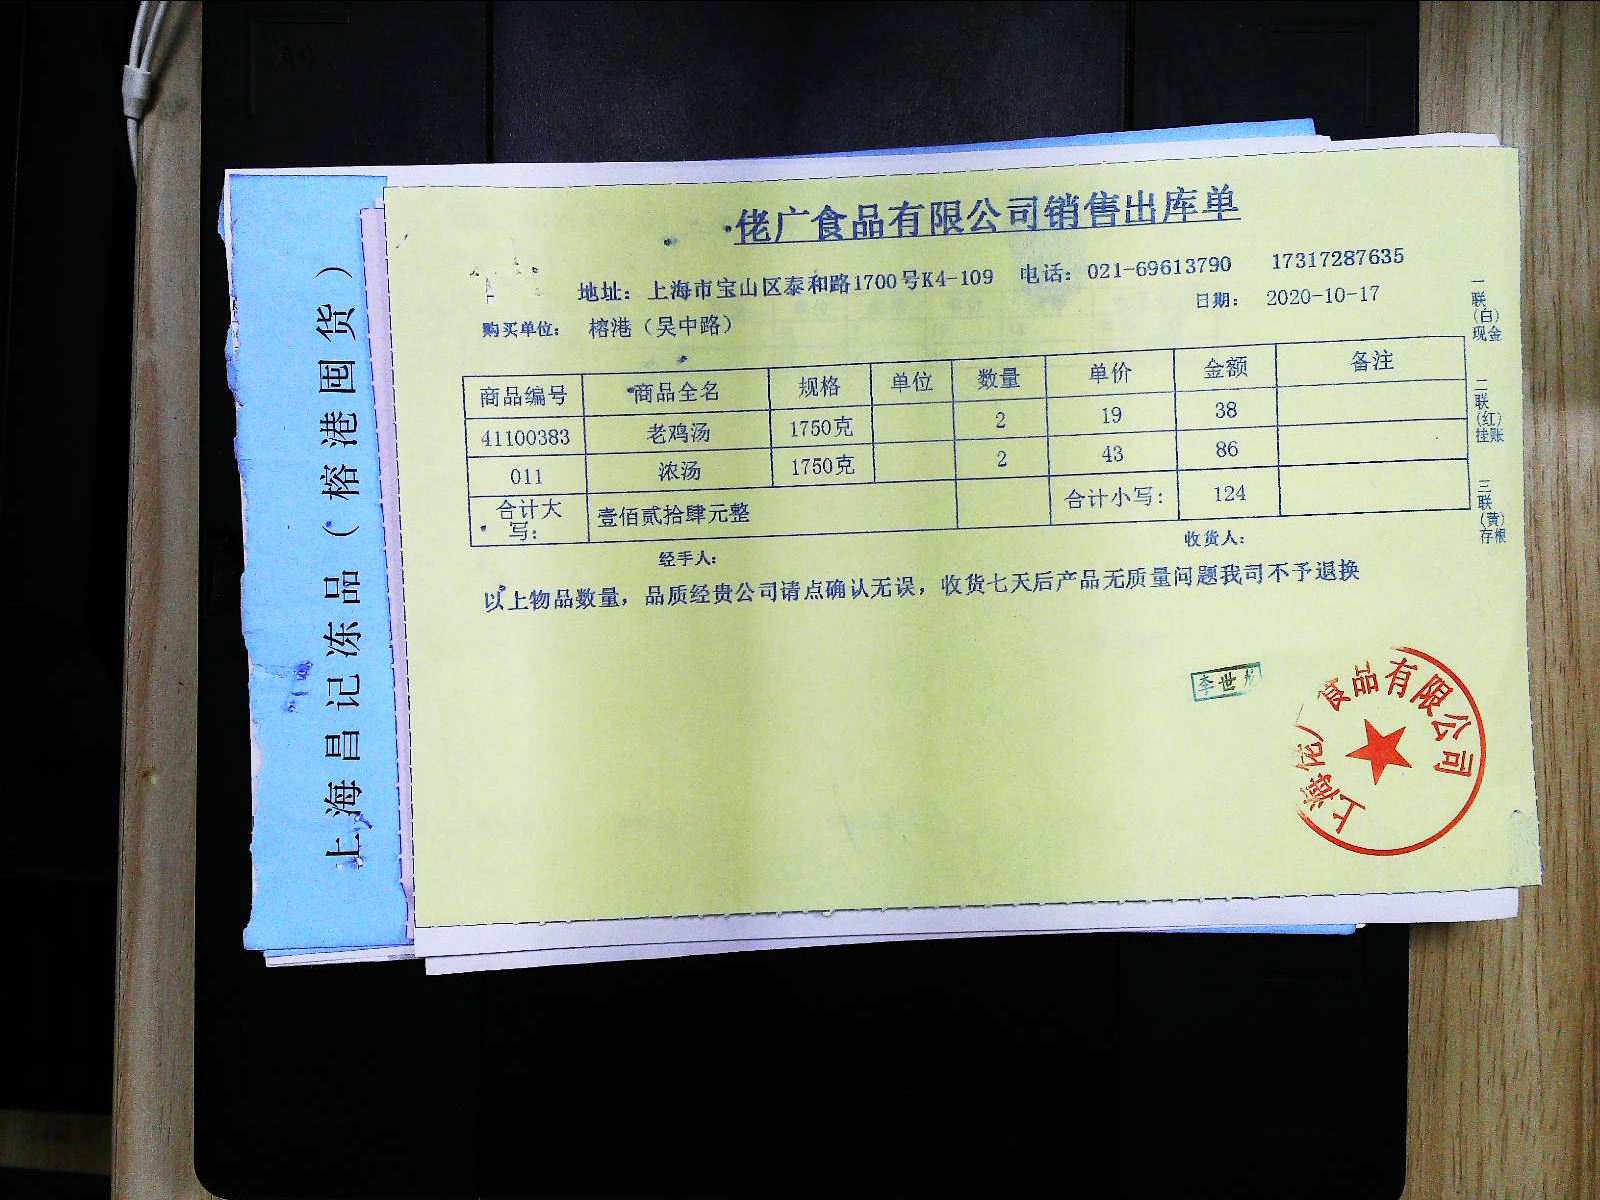 佬广食品有限公司销售出库单
地址：上海市宝山区泰和路1700号K4-109 电话：021-69613790 17317287635
日期： 2020-10-17
购买单位： 榕港（吴中路）
商品编号 商品全名 规格 单位 数量 单价 金额 备注
41100383 老鸡汤 1750克 2 19 38
011 浓汤 1750克 2 43 86
合计大写： 壹佰贰拾肆元整 合计小写： 124
经手人： 收货人：
以上物品数量，品质经贵公司请点确认无误，收货七天后产品无质量问题我司不予退换
一联（白）现金
二联（红）挂账
三联（黄）存根
李世
上海佬广食品有限公司
上海昌记冻品（榕港囤货）